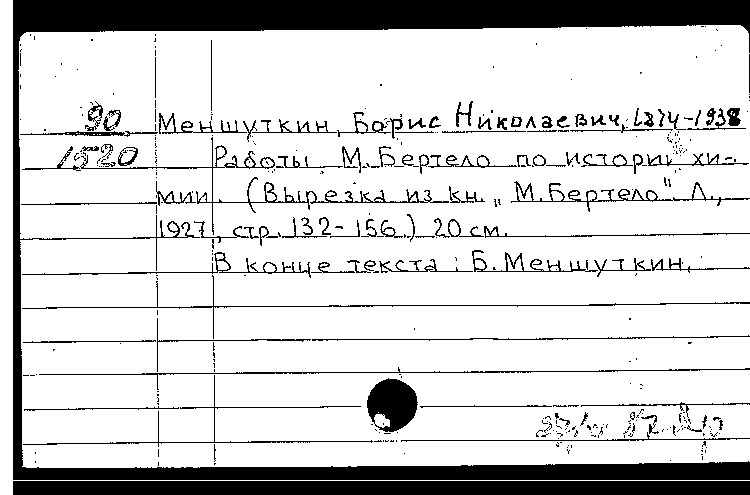 90 Меншуткин, Борис Николаевич, 1874-1938
1520 Работы М. Бертело по истории хи-
мии. (Вырезка из кн. „М. Бертело". Л.,
1927, стр. 132-156.) 20 см.
В конце текста: Б. Меншуткин.